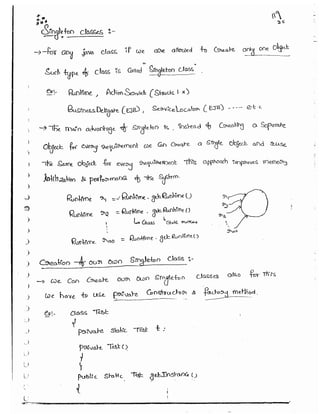 Singleton classes :-
→ for any java class if we are allowed to Create only one object
Such type of class is Said "Singleton class".
Ex:- Runtime, Action Servlet (Struts 1.x)
BusinessDelegate (EJB), ServiceLocator (EJB) ----- etc.
→ The main advantage of Singleton is, instead of Creating a Separate
Object for every requirement we Can Create a Single Object and reuse
the Same Object for every requirement This approach improves memory
Utilization & performance of the System.
Runtime r1 = Runtime.getRuntime()
Runtime r2 = Runtime.getRuntime()
Class Static method
Runtime r100 = Runtime.getRuntime()
r1
r2
r100
Creation of our own Singleton Class :-
→ We Can Create our own Singleton classes also for this
we have to use private Constructor & factory method.
Ex:- class Test
{
private static Test t;
private Test()
{
}
public static Test getInstance()
{